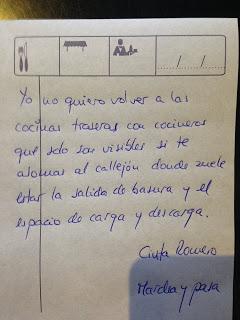 / /
Yo no quiero volver a las
cocinas traseras con cocineros
que solo son visibles si te
asomas al callejón donde suele
estar la salida de basura y el
espacio de carga y descarga.
Civita Romero
Marcha y pasa